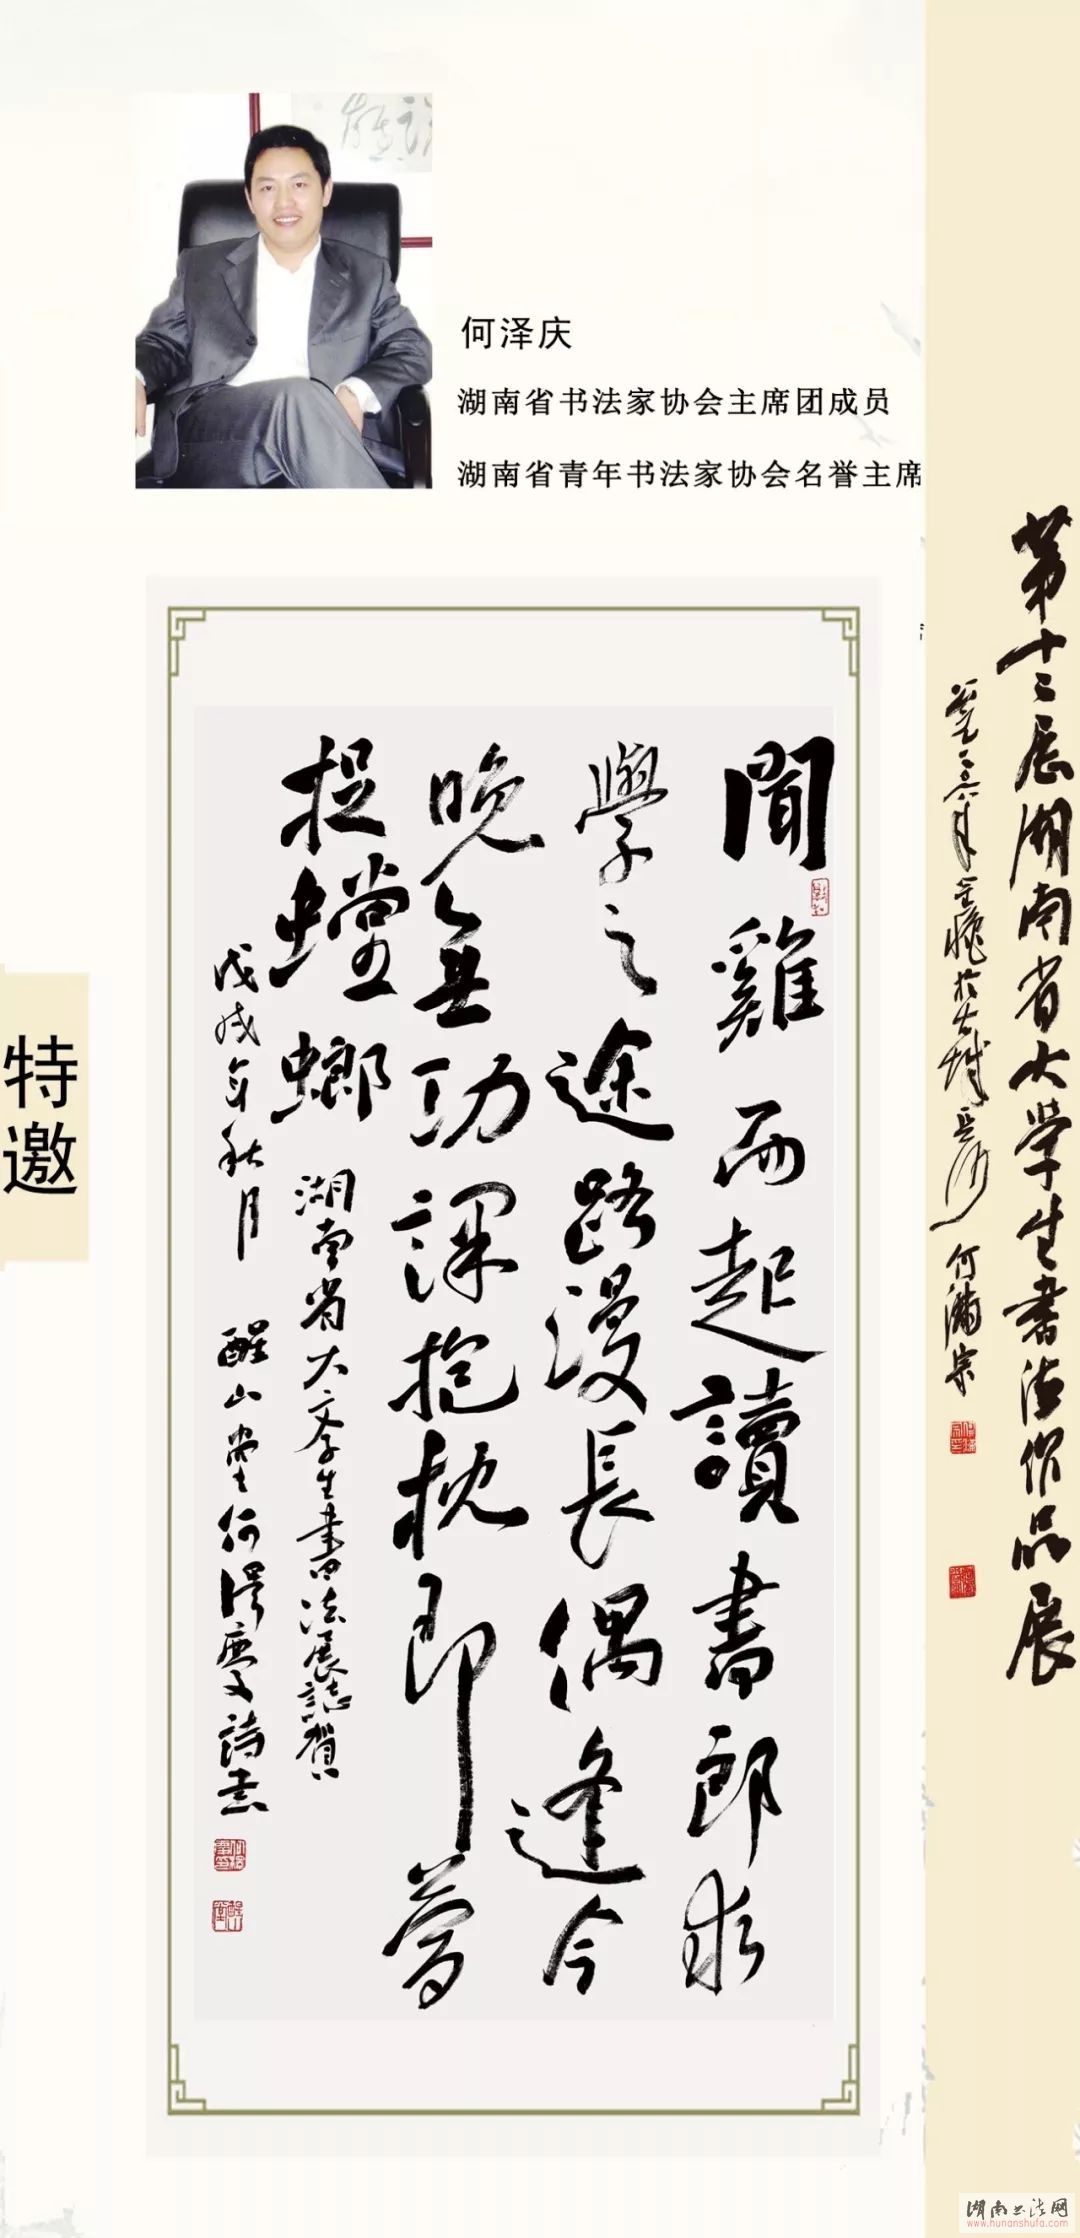 何泽庆
湖南省书法家协会主席团成员
湖南省青年书法家协会名誉主席
特邀
聞雞而起讀書郎求
學之途路漫長偶逢今
晚無功課抱枕即夢
捉螳螂
湖南省大學生書法展誌賀
戊戌年秋月 醒山堂何澤慶文詩書
第十二届湖南省大学生書法作品展
何满宗
湖南书法网
www.hunanshufa.com